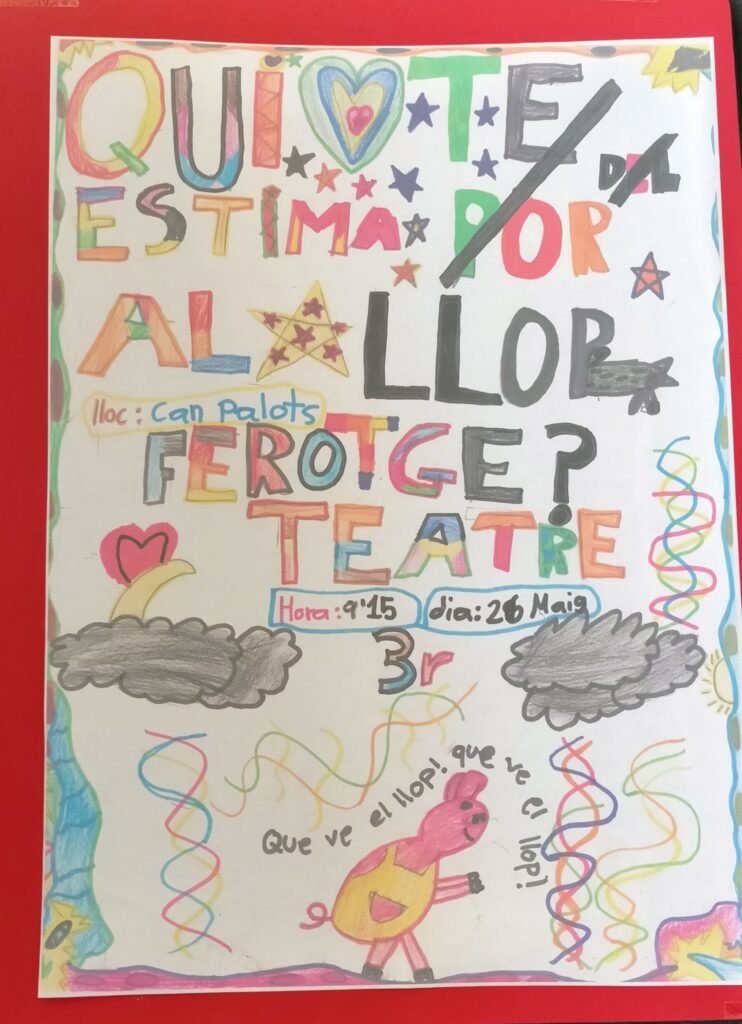 QUI TE
DEL
ESTIMA POR
AL LLOP
lloc: Can Palots
FEROTGE?
TEATRE
Hora: 9'15 dia: 26 Maig
3r
Que ve el llop! que ve el llop!